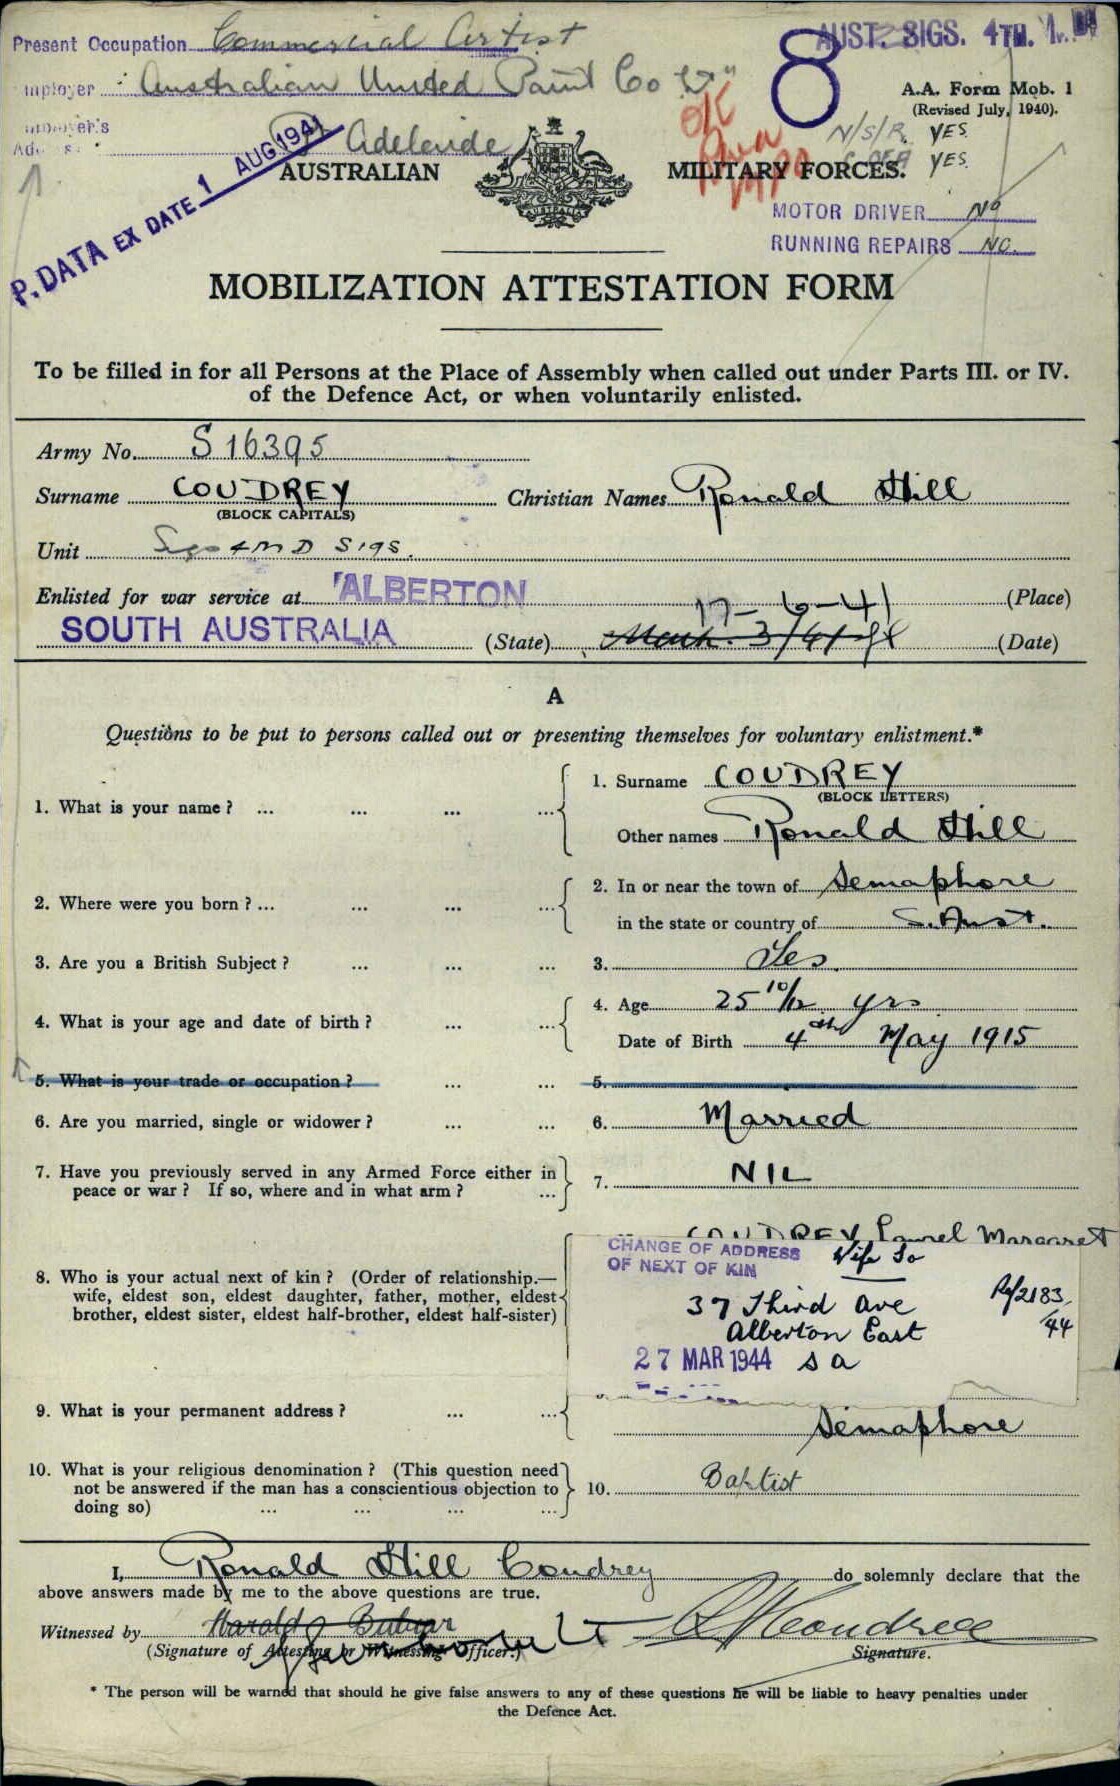 Present Occupation Commercial Artist
AUST. SIGS. 4TH.
Employer Australian United Paint Co
8
A.A. Form Mob. 1
(Revised July, 1940).
Adelaide
O/C
N/S/R. YES
YES
P. DATA EX DATE 1 AUG 1941
AUSTRALIAN MILITARY FORCES.
AUSTRALIA
MOTOR DRIVER No
RUNNING REPAIRS NO.
MOBILIZATION ATTESTATION FORM
To be filled in for all Persons at the Place of Assembly when called out under Parts III. or IV.
of the Defence Act, or when voluntarily enlisted.
Army No. S 16395
Surname COUDREY Christian Names Ronald Hill
(BLOCK CAPITALS)
Unit Sigs 4 M D SIGS.
Enlisted for war service at ALBERTON (Place)
17-6-41
SOUTH AUSTRALIA (State) March 3/41 (Date)
A
Questions to be put to persons called out or presenting themselves for voluntary enlistment.*
1. What is your name? ... ... ... ... 1. Surname COUDREY
(BLOCK LETTERS)
Other names Ronald Hill
2. Where were you born? ... ... ... ... 2. In or near the town of Semaphore
in the state or country of S. Aust.
3. Are you a British Subject? ... ... ... 3. Yes.
4. What is your age and date of birth? ... ... 4. Age 25 10/12 yrs
Date of Birth 4th May 1915
5. What is your trade or occupation? ... ... 5.
6. Are you married, single or widower? ... ... 6. Married
7. Have you previously served in any Armed Force either in
peace or war? If so, where and in what arm? ... 7. NIL
COUDREY Laurel Margaret
CHANGE OF ADDRESS
OF NEXT OF KIN
Wife to
8. Who is your actual next of kin? (Order of relationship.—
wife, eldest son, eldest daughter, father, mother, eldest
brother, eldest sister, eldest half-brother, eldest half-sister)
37 Third Ave
Alberton East
27 MAR 1944 S A
Ro/2183/44
9. What is your permanent address? ... ...
Semaphore
10. What is your religious denomination? (This question need
not be answered if the man has a conscientious objection to
doing so) ... ... ... ... 10. Baptist
I, Ronald Hill Coudrey do solemnly declare that the
above answers made by me to the above questions are true.
Witnessed by Harold R H Coudrey
(Signature of Attesting or Witnessing Officer.) Signature.
* The person will be warned that should he give false answers to any of these questions he will be liable to heavy penalties under
the Defence Act.